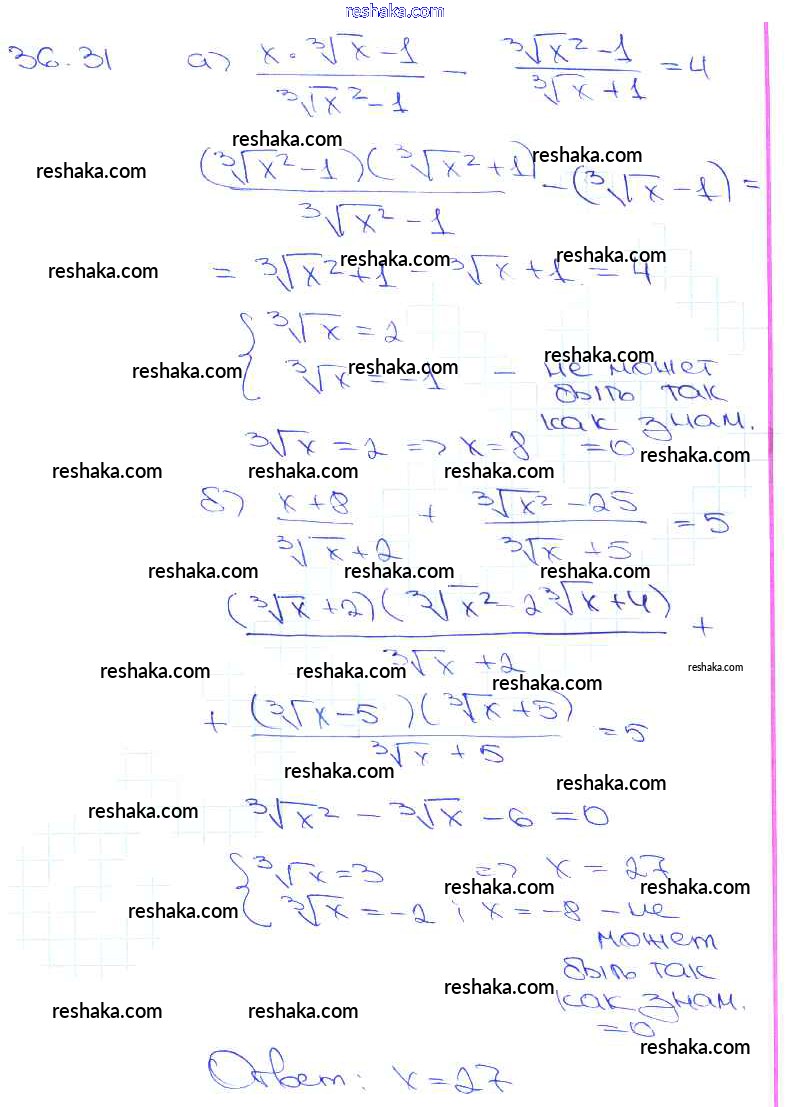 reshaka.com
36.31 а) (x · ∛x − 1)/(∛x² − 1) − (∛x² − 1)/(∛x + 1) = 4
reshaka.com
reshaka.com reshaka.com
((∛x² − 1)(∛x² + 1))/(∛x² − 1) − (∛x − 1) =
reshaka.com reshaka.com reshaka.com
= ∛x² + 1 − ∛x + 1 = 4
{ ∛x = 2
reshaka.com reshaka.com reshaka.com
∛x = −1 − не может
быть так
как знам.
∛x = 2 => x = 8 = 0
reshaka.com
reshaka.com reshaka.com reshaka.com
б) (x + 8)/(∛x + 2) + (∛x² − 25)/(∛x + 5) = 5
reshaka.com reshaka.com reshaka.com
((∛x + 2)(∛x² − 2∛x + 4))/(∛x + 2) +
reshaka.com reshaka.com reshaka.com reshaka.com
+ ((∛x − 5)(∛x + 5))/(∛x + 5) = 5
reshaka.com reshaka.com
reshaka.com
∛x² − ∛x − 6 = 0
{ ∛x = 3 => x = 27
reshaka.com reshaka.com
reshaka.com
∛x = −2 ; x = −8 − не
может
быть так
reshaka.com
как знам.
reshaka.com reshaka.com
= 0
reshaka.com
Ответ: x = 27